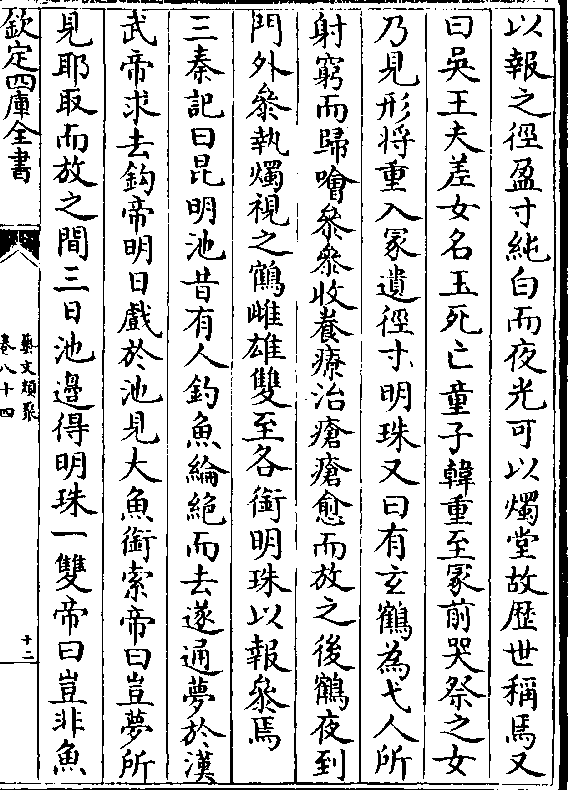 以報之徑盈寸純白而夜光可以燭堂故歴世稱焉又
曰吳王夫差女名玉死亡童子韓重至冢前哭祭之女
乃見形将重入冢遺徑寸明珠又曰有玄鶴為弋人所
射窮而歸噲叅叅收養療治瘡瘡愈而放之後鶴夜到
門外叅執燭視之鶴雌雄雙至各銜明珠以報叅焉
三秦記曰昆明池昔有人釣魚綸絕而去遂通夢於漢
武帝求去鈎帝明日戲於池見大魚銜索帝曰豈夢所
見耶取而放之間三日池邊得明珠一雙帝曰豈非魚
欽定四庫全書
藝文類聚
卷八十四
十二